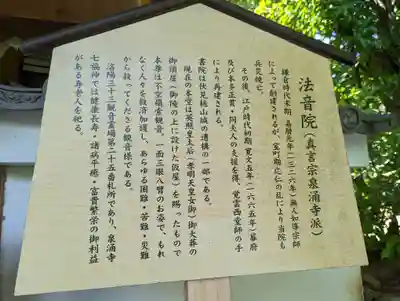 法音院（真言宗泉涌寺派）
鎌倉時代末期、嘉暦元年（一三二六年）無人如導宗師
によって創建されるが、室町期応仁の乱により当院も
兵災焼亡。
その後、江戸時代初期、寛文五年（一六六五年）幕府
及び本多正貫・同夫人の支援を得、覚雲西堂師の手
により再建される。
書院は伏見桃山城の遺構の一部である。
現在の本堂は英照皇太后（孝明天皇女御）御大葬の
御須屋（御陵の上に設けた仮屋）を賜ったもので
本尊は不空羂索観音、一面三眼八臂のお姿で、もれ
なく人々を救済加護し、あらゆる困難・苦難・災難
から救ってくださる観音様である。
洛陽三十三観音霊場第二十五番札所であり、泉涌寺
七福神では健康長寿・諸病平癒・富貴繁栄の御利益
がある寿老人を祀る。